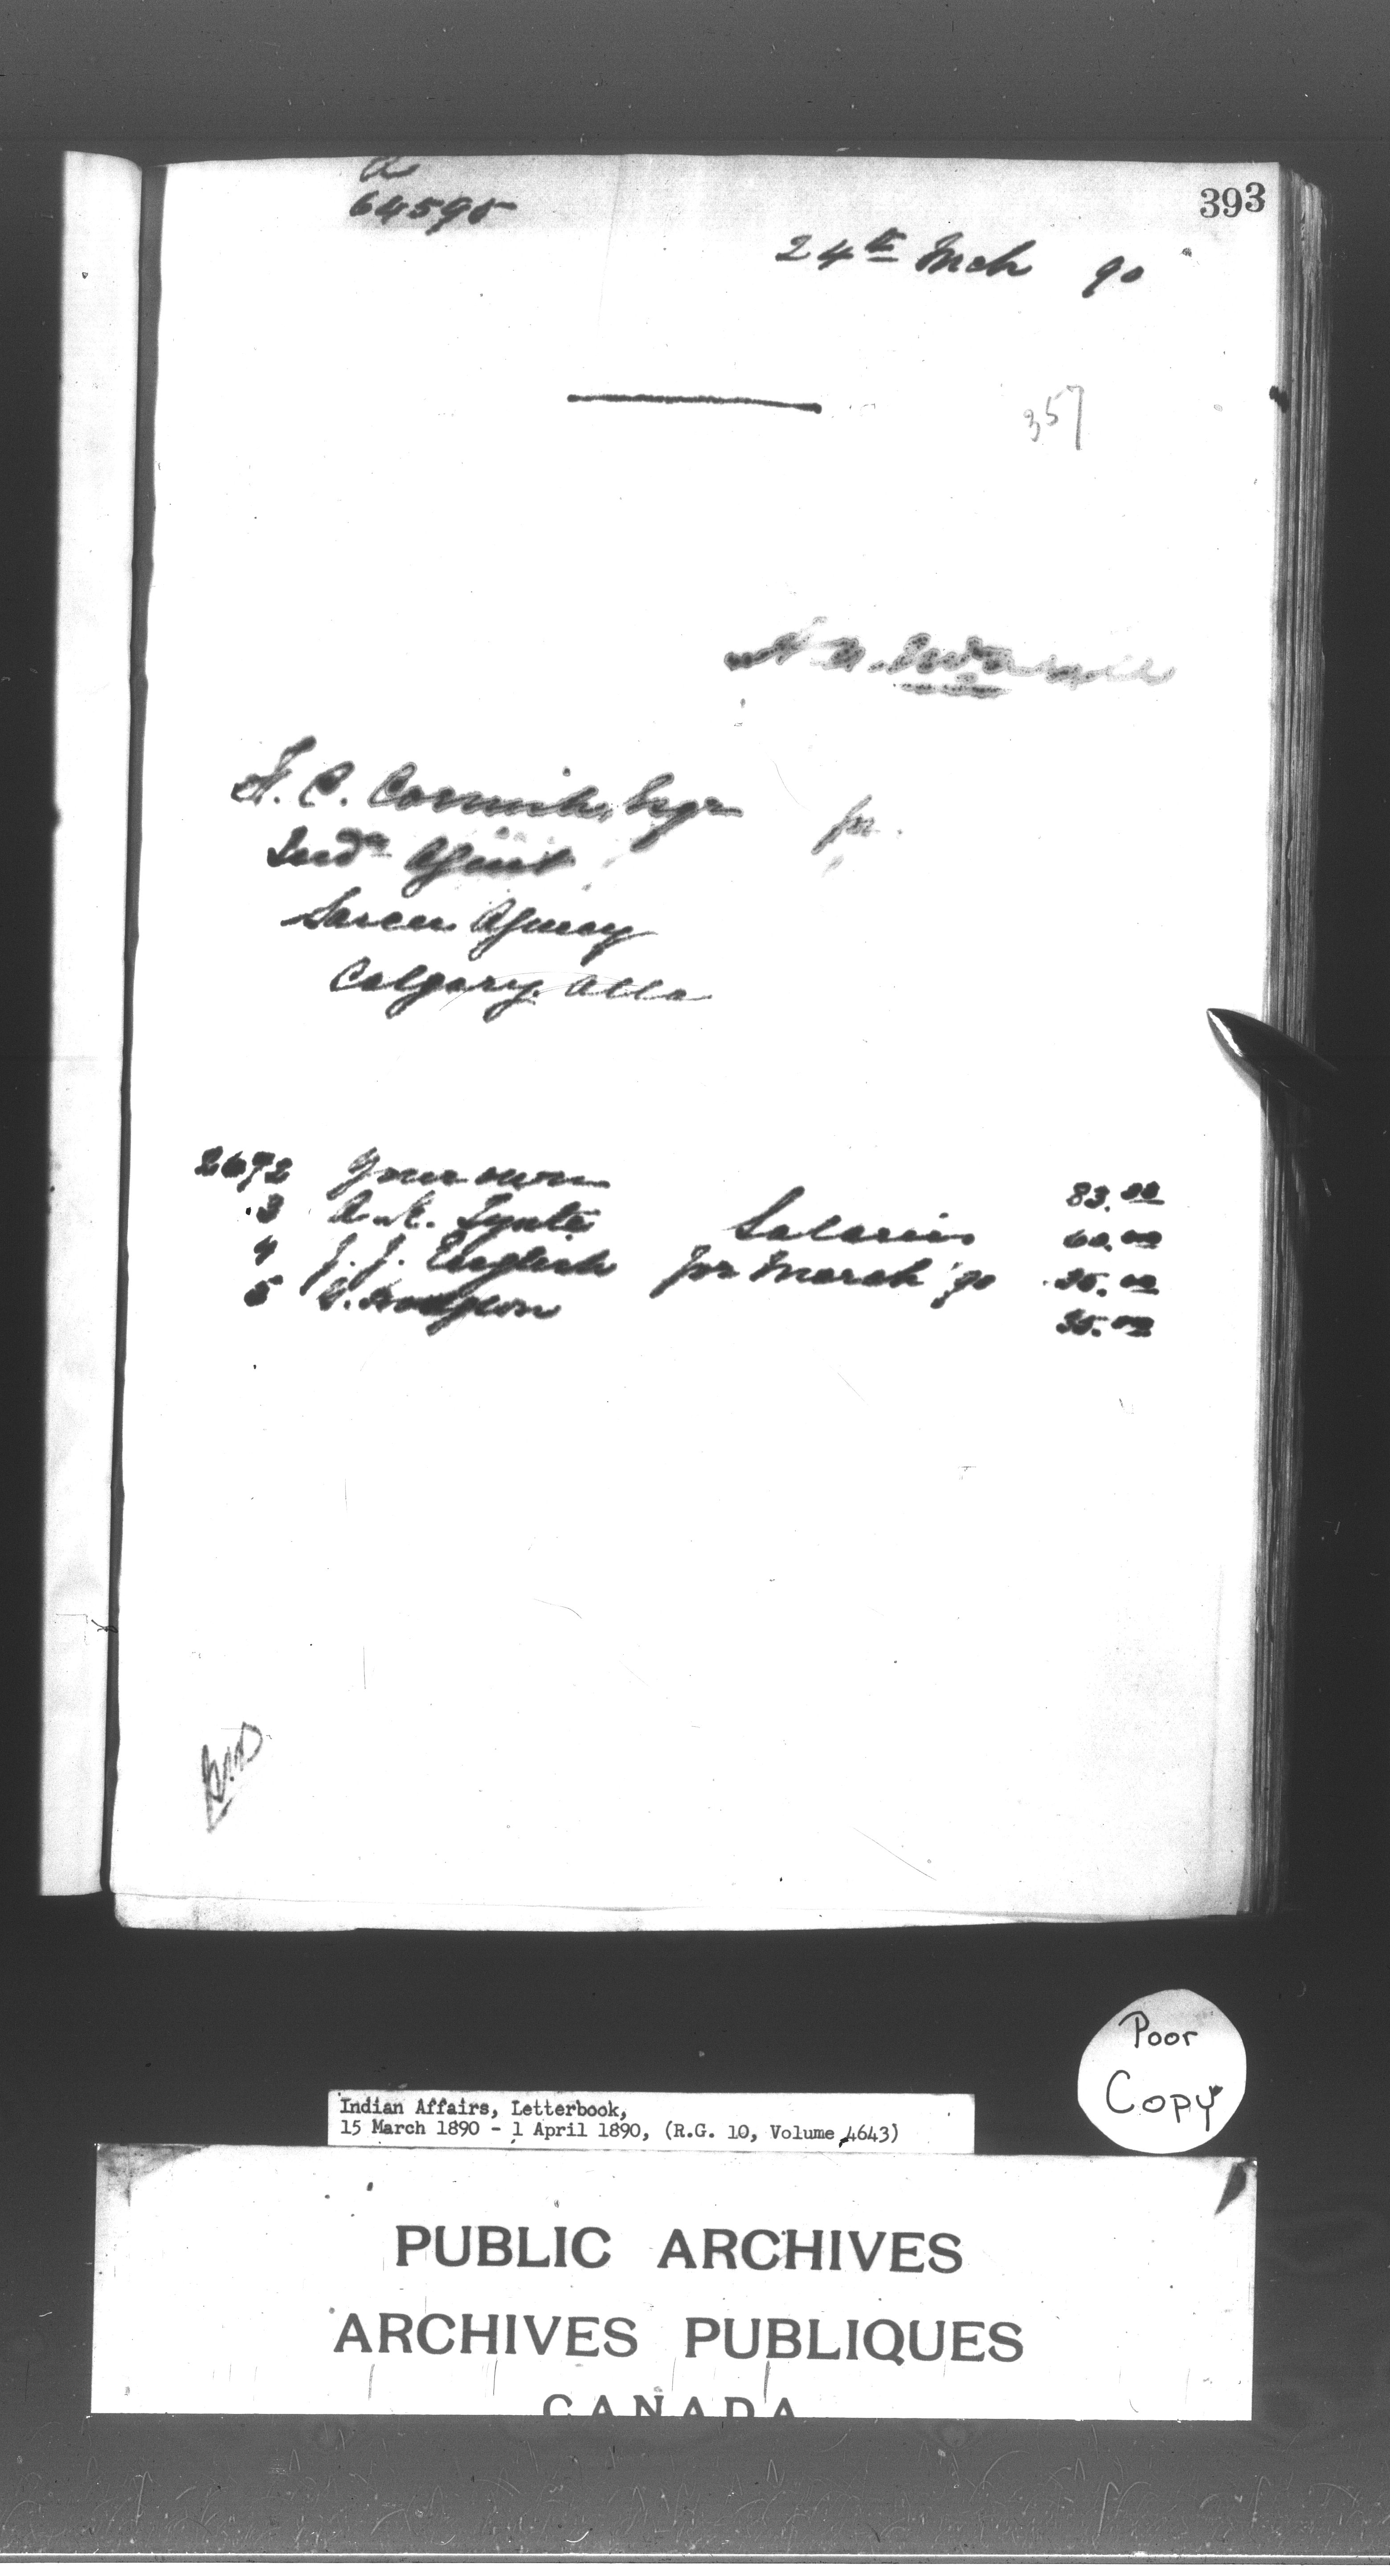 393
64595
24th Mch 90
357
F. C. Cornish, Esqr
Indn Agent
Sarcee Agency
Calgary. Alta
2672 Your own 83.00
3 A. E. Lynte Salaries 60.00
4 J. J. English for March '90 35.00
5 G. Hodgson 35.00
Poor
Copy
Indian Affairs, Letterbook,
15 March 1890 - 1 April 1890, (R.G. 10, Volume 4643)
PUBLIC ARCHIVES
ARCHIVES PUBLIQUES
CANADA